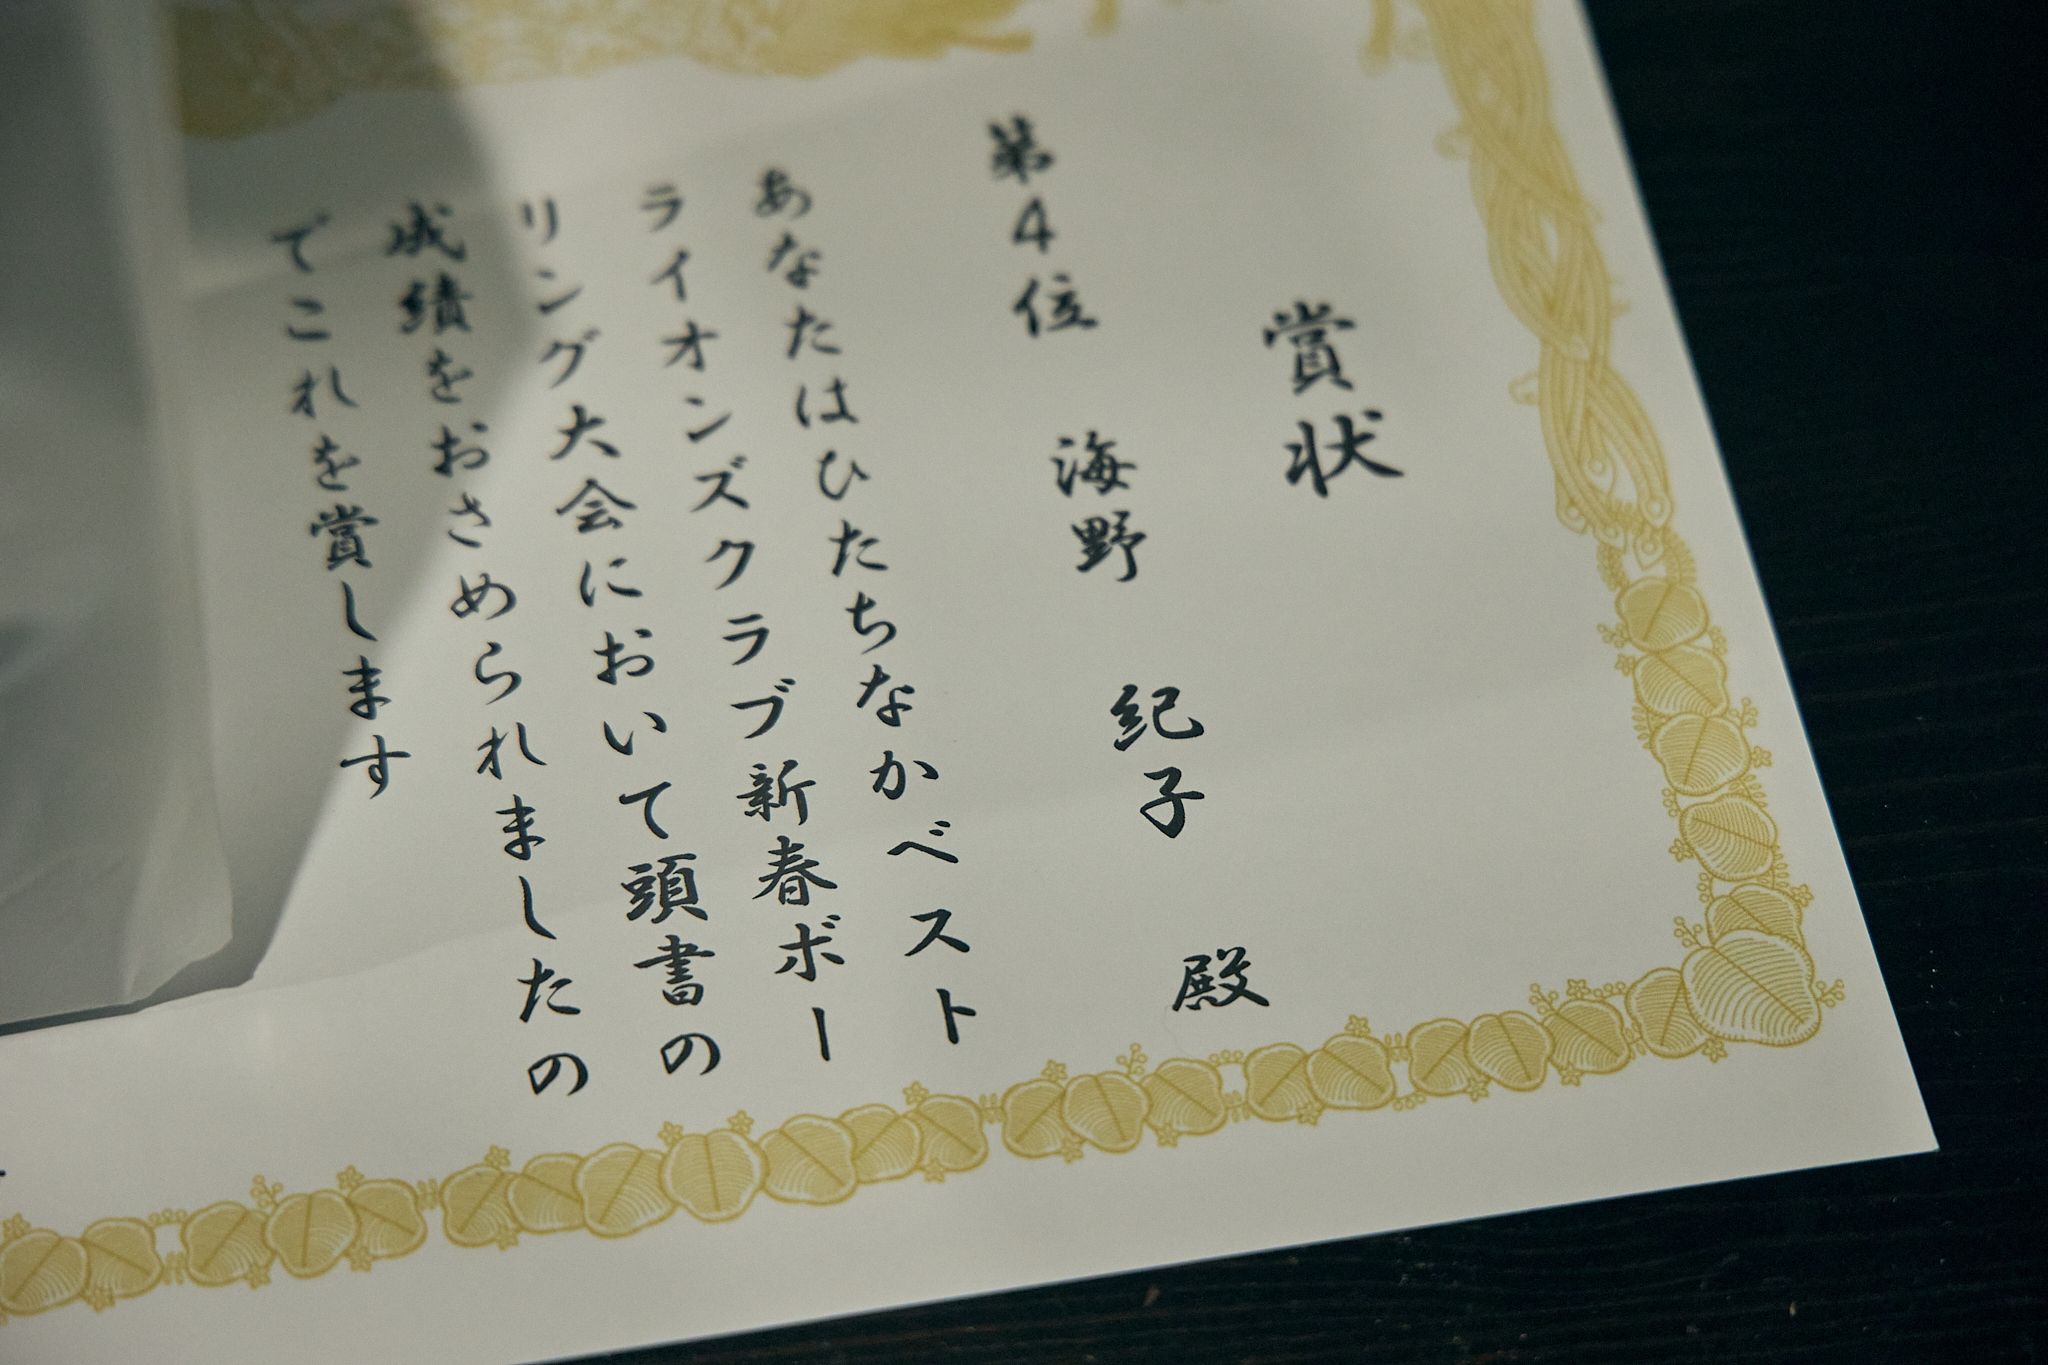 賞状
第4位 海野 紀子 殿
あなたはひたちなかベスト
ライオンズクラブ新春ボー
リング大会において頭書の
成績をおさめられましたの
でこれを賞します